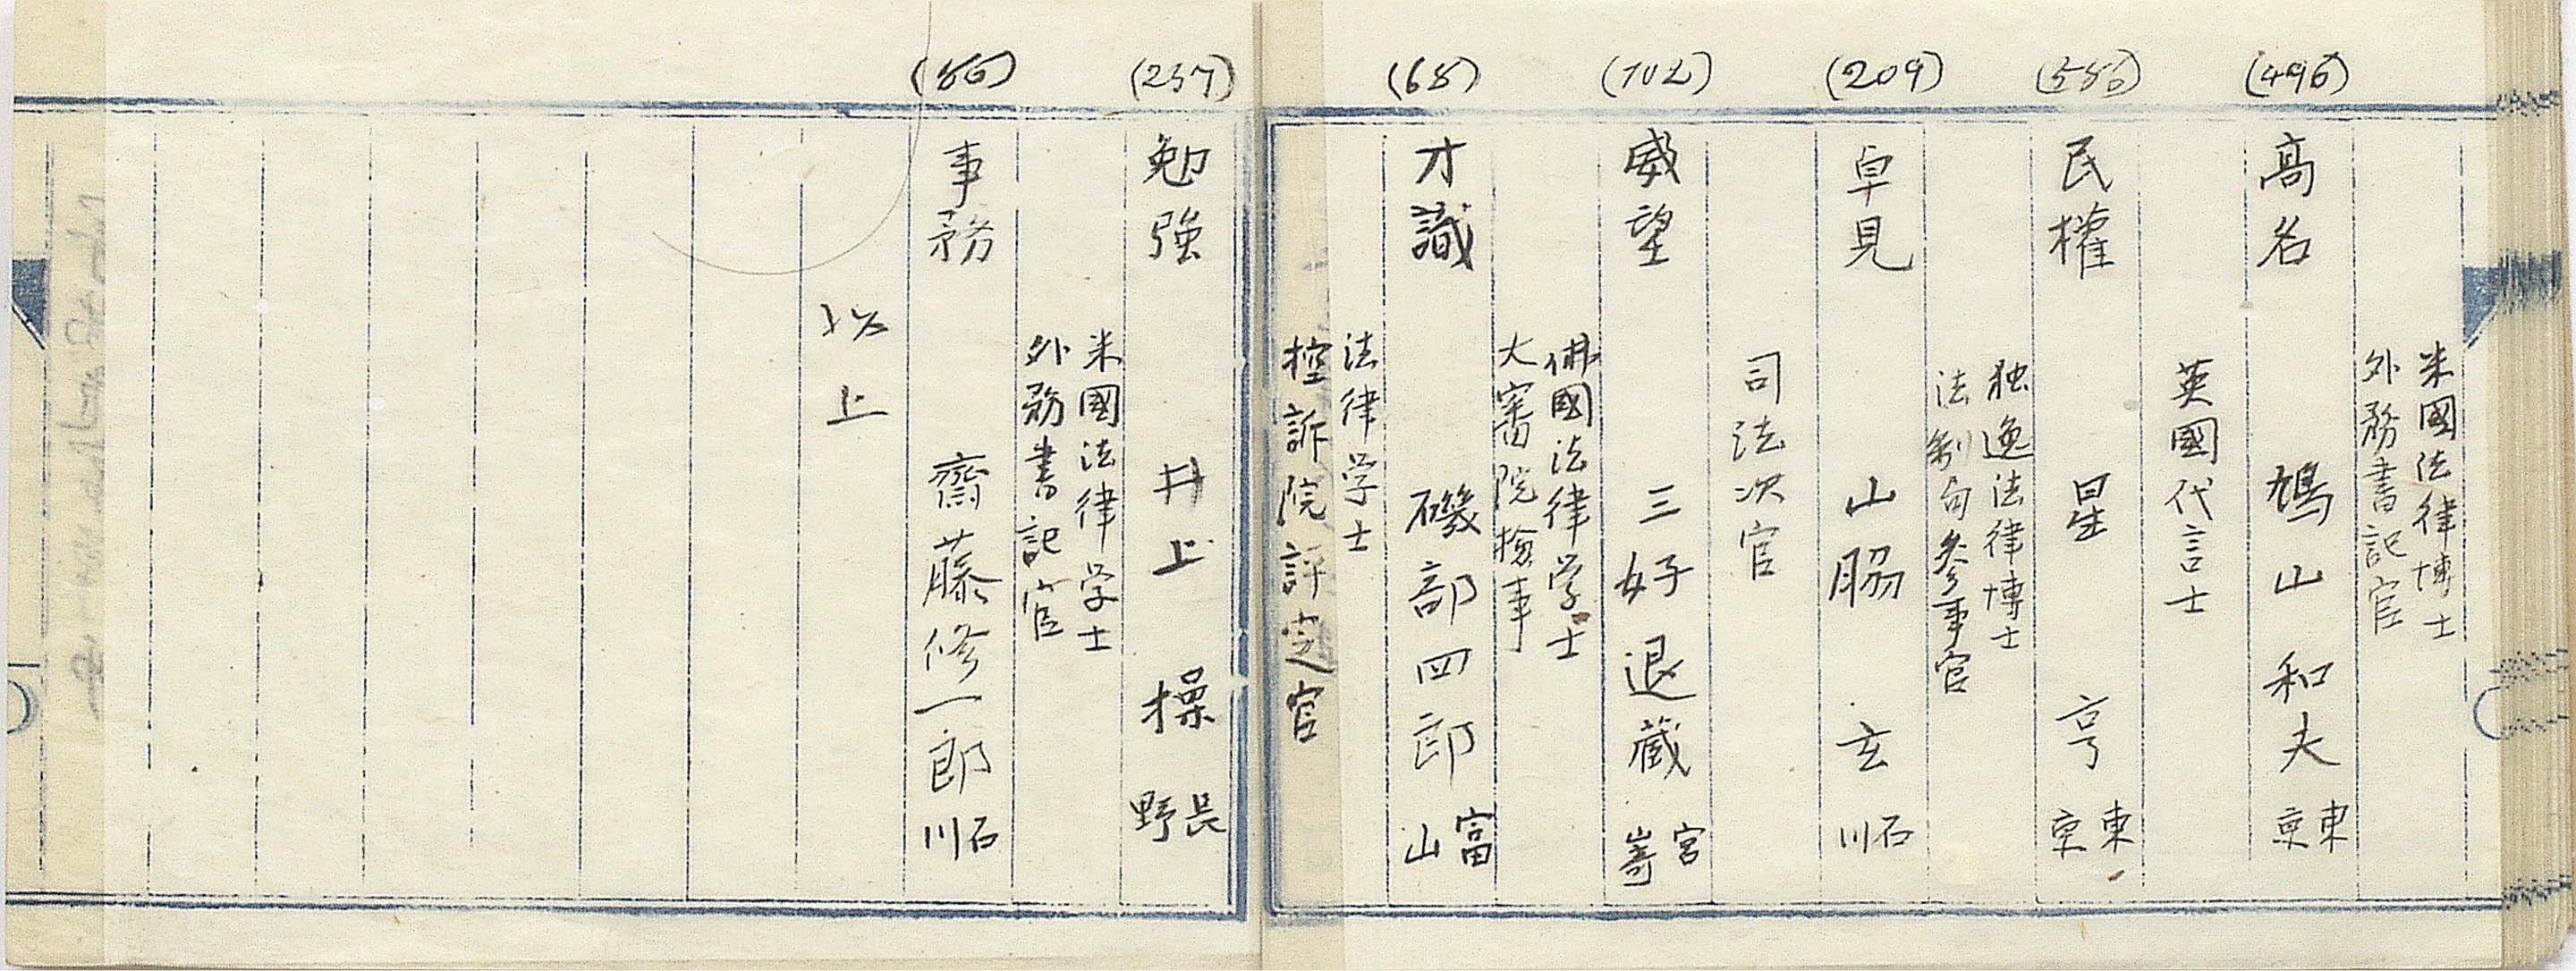 米國法律博士
外務書記官
(496)
高名 鳩山和夫 東京
英國代言士
民權 星 亨 東京
独逸法律博士
法制局参事官
(209)
卓見 山脇 玄 石川
司法次官
(102)
威望 三好退蔵 宮嵜
佛國法律学士
大審院検事
(68)
才識 磯部四郎 富山
法律学士
控訴院評定官
(237)
勉強 井上 操 長野
米國法律学士
外務書記官
事務 齋藤修一郎 石川
以上